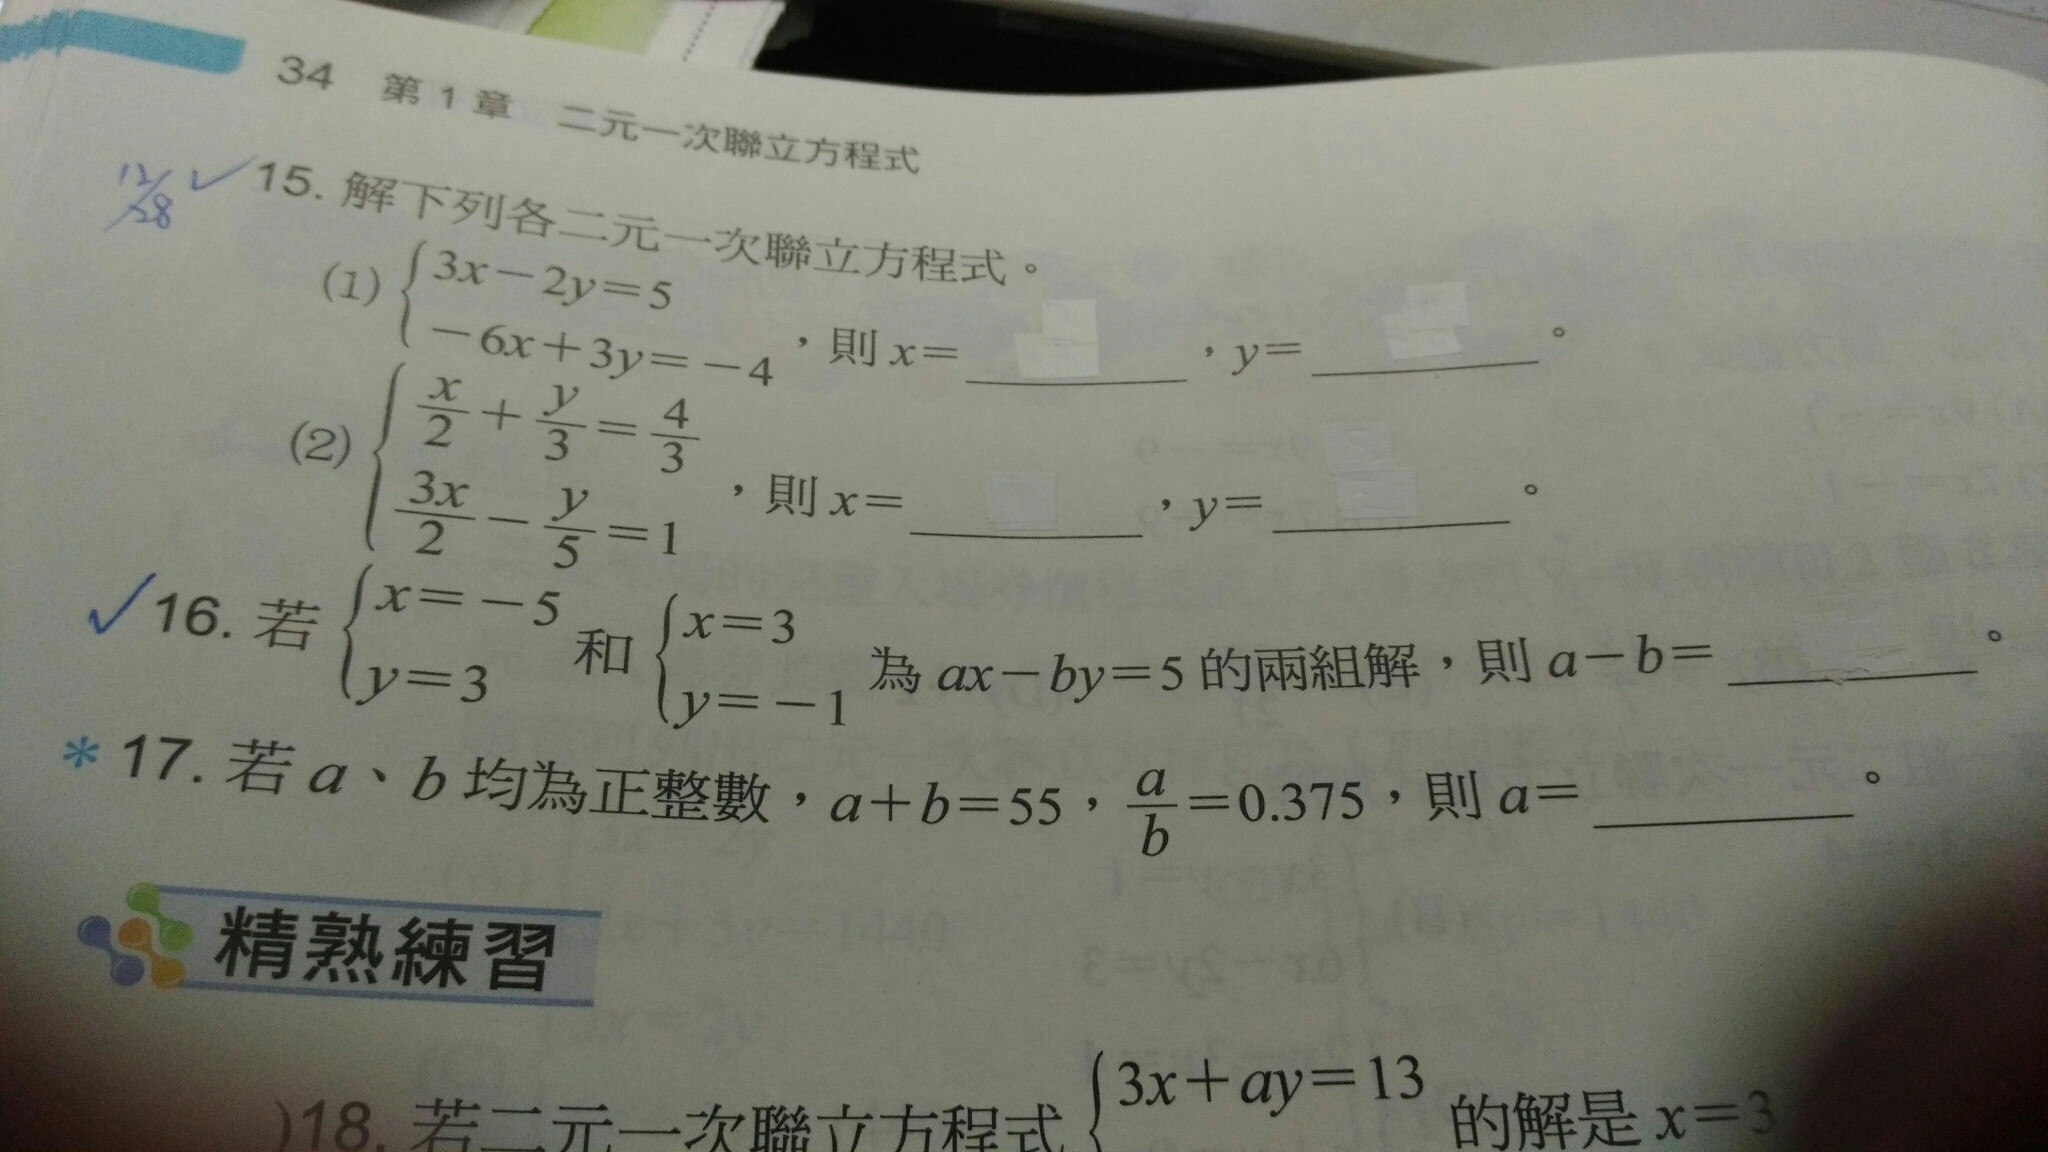 34 第1章 二元一次聯立方程式
12/28 ✓ 15. 解下列各二元一次聯立方程式。
(1) { 3x－2y＝5
－6x＋3y＝－4 ，則 x＝______，y＝______。
(2) { x/2＋y/3＝4/3
3x/2－y/5＝1 ，則 x＝______，y＝______。
✓ 16. 若 { x＝－5 y＝3 和 { x＝3 y＝－1 為 ax－by＝5 的兩組解，則 a－b＝______。
* 17. 若 a、b 均為正整數，a＋b＝55，a/b＝0.375，則 a＝______。
精熟練習
)18. 若二元一次聯立方程式 { 3x＋ay＝13 的解是 x＝3